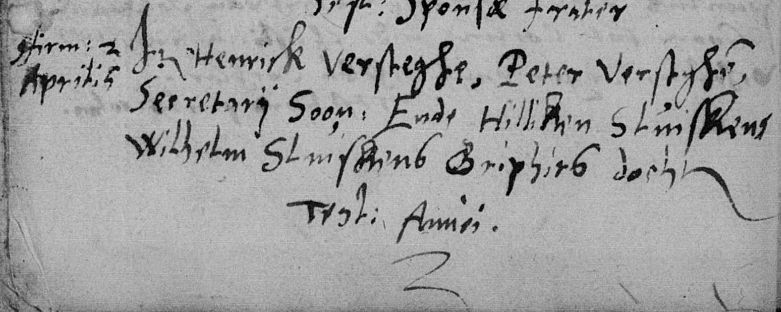 Test: Sponsæ frater
Confirm: 2 Jr Henrick Versteghe, Peter Versteghē
Aprilis Secretarij Soon: Ende Hilliken Sluiskens
Wilhelm Sluiskens Griphirs docht
Test: Amici.